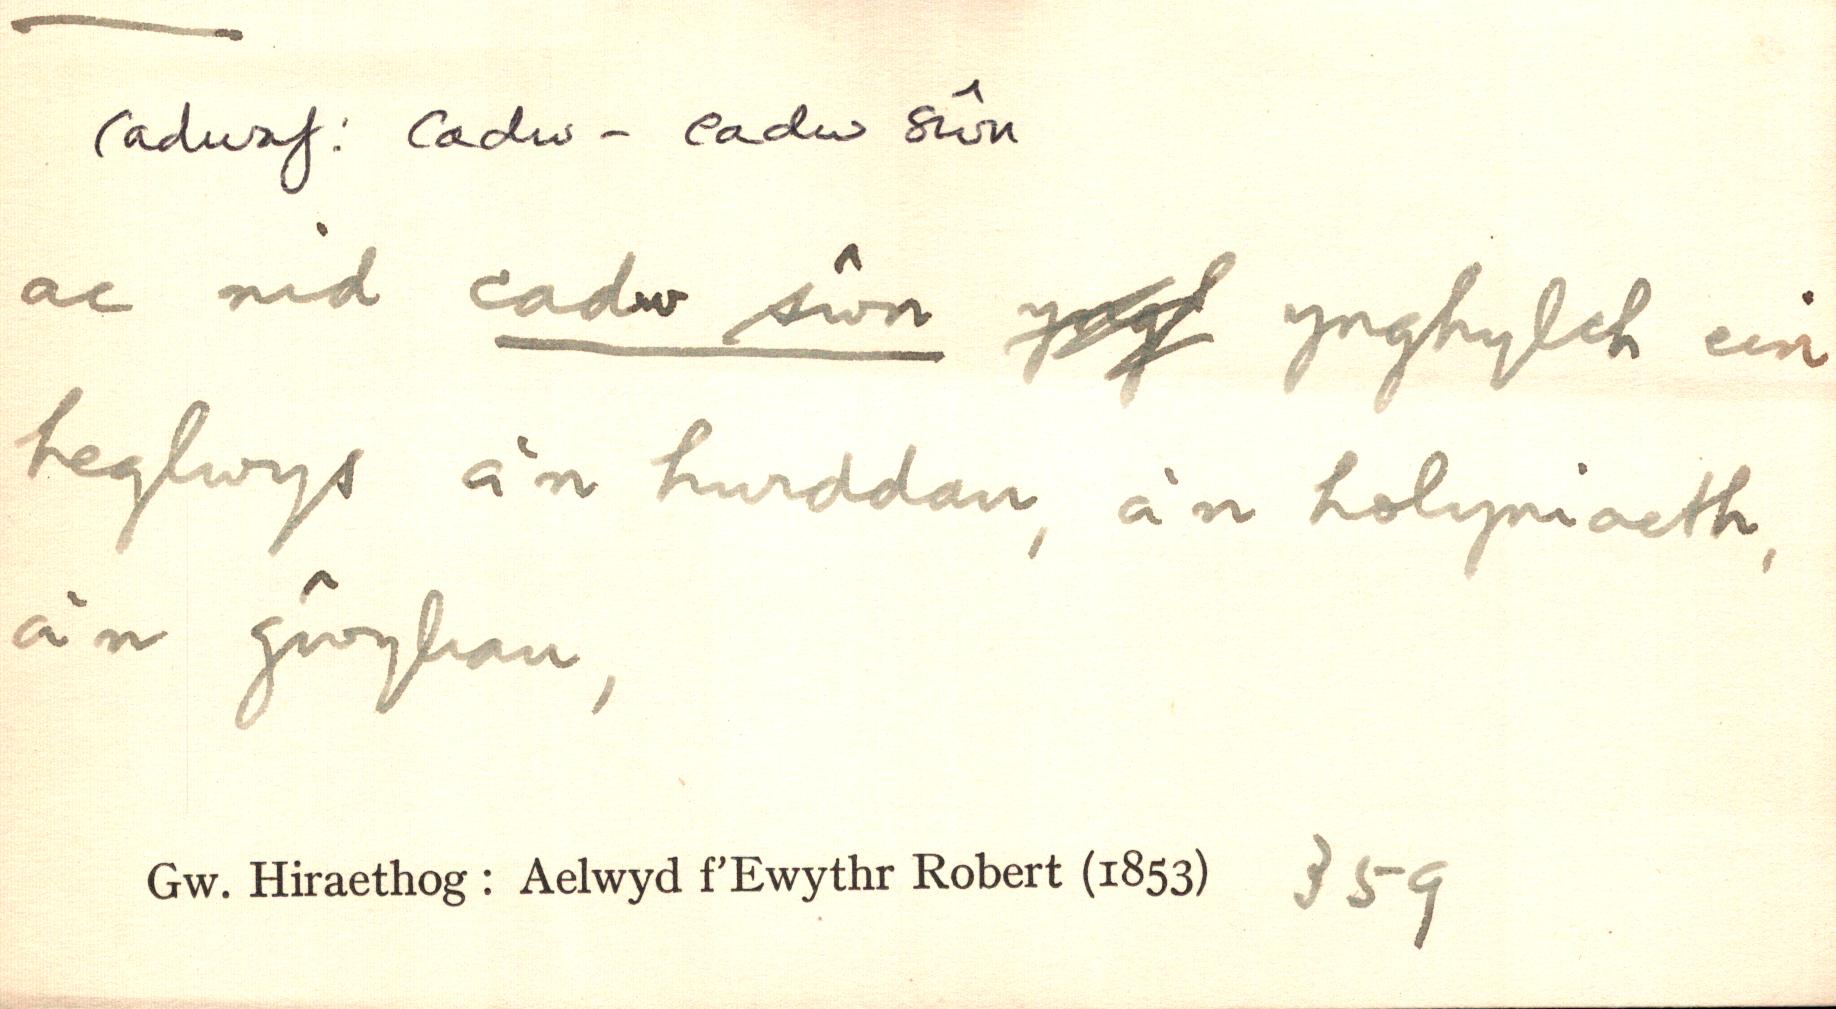 cadwaf: cadw - cadw sŵn
ac nid cadw sŵn ynghylch ein
heglwys a'n hurddau, a'n holyniaeth,
a'n gŵyliau,
Gw. Hiraethog : Aelwyd f'Ewythr Robert (1853) 359